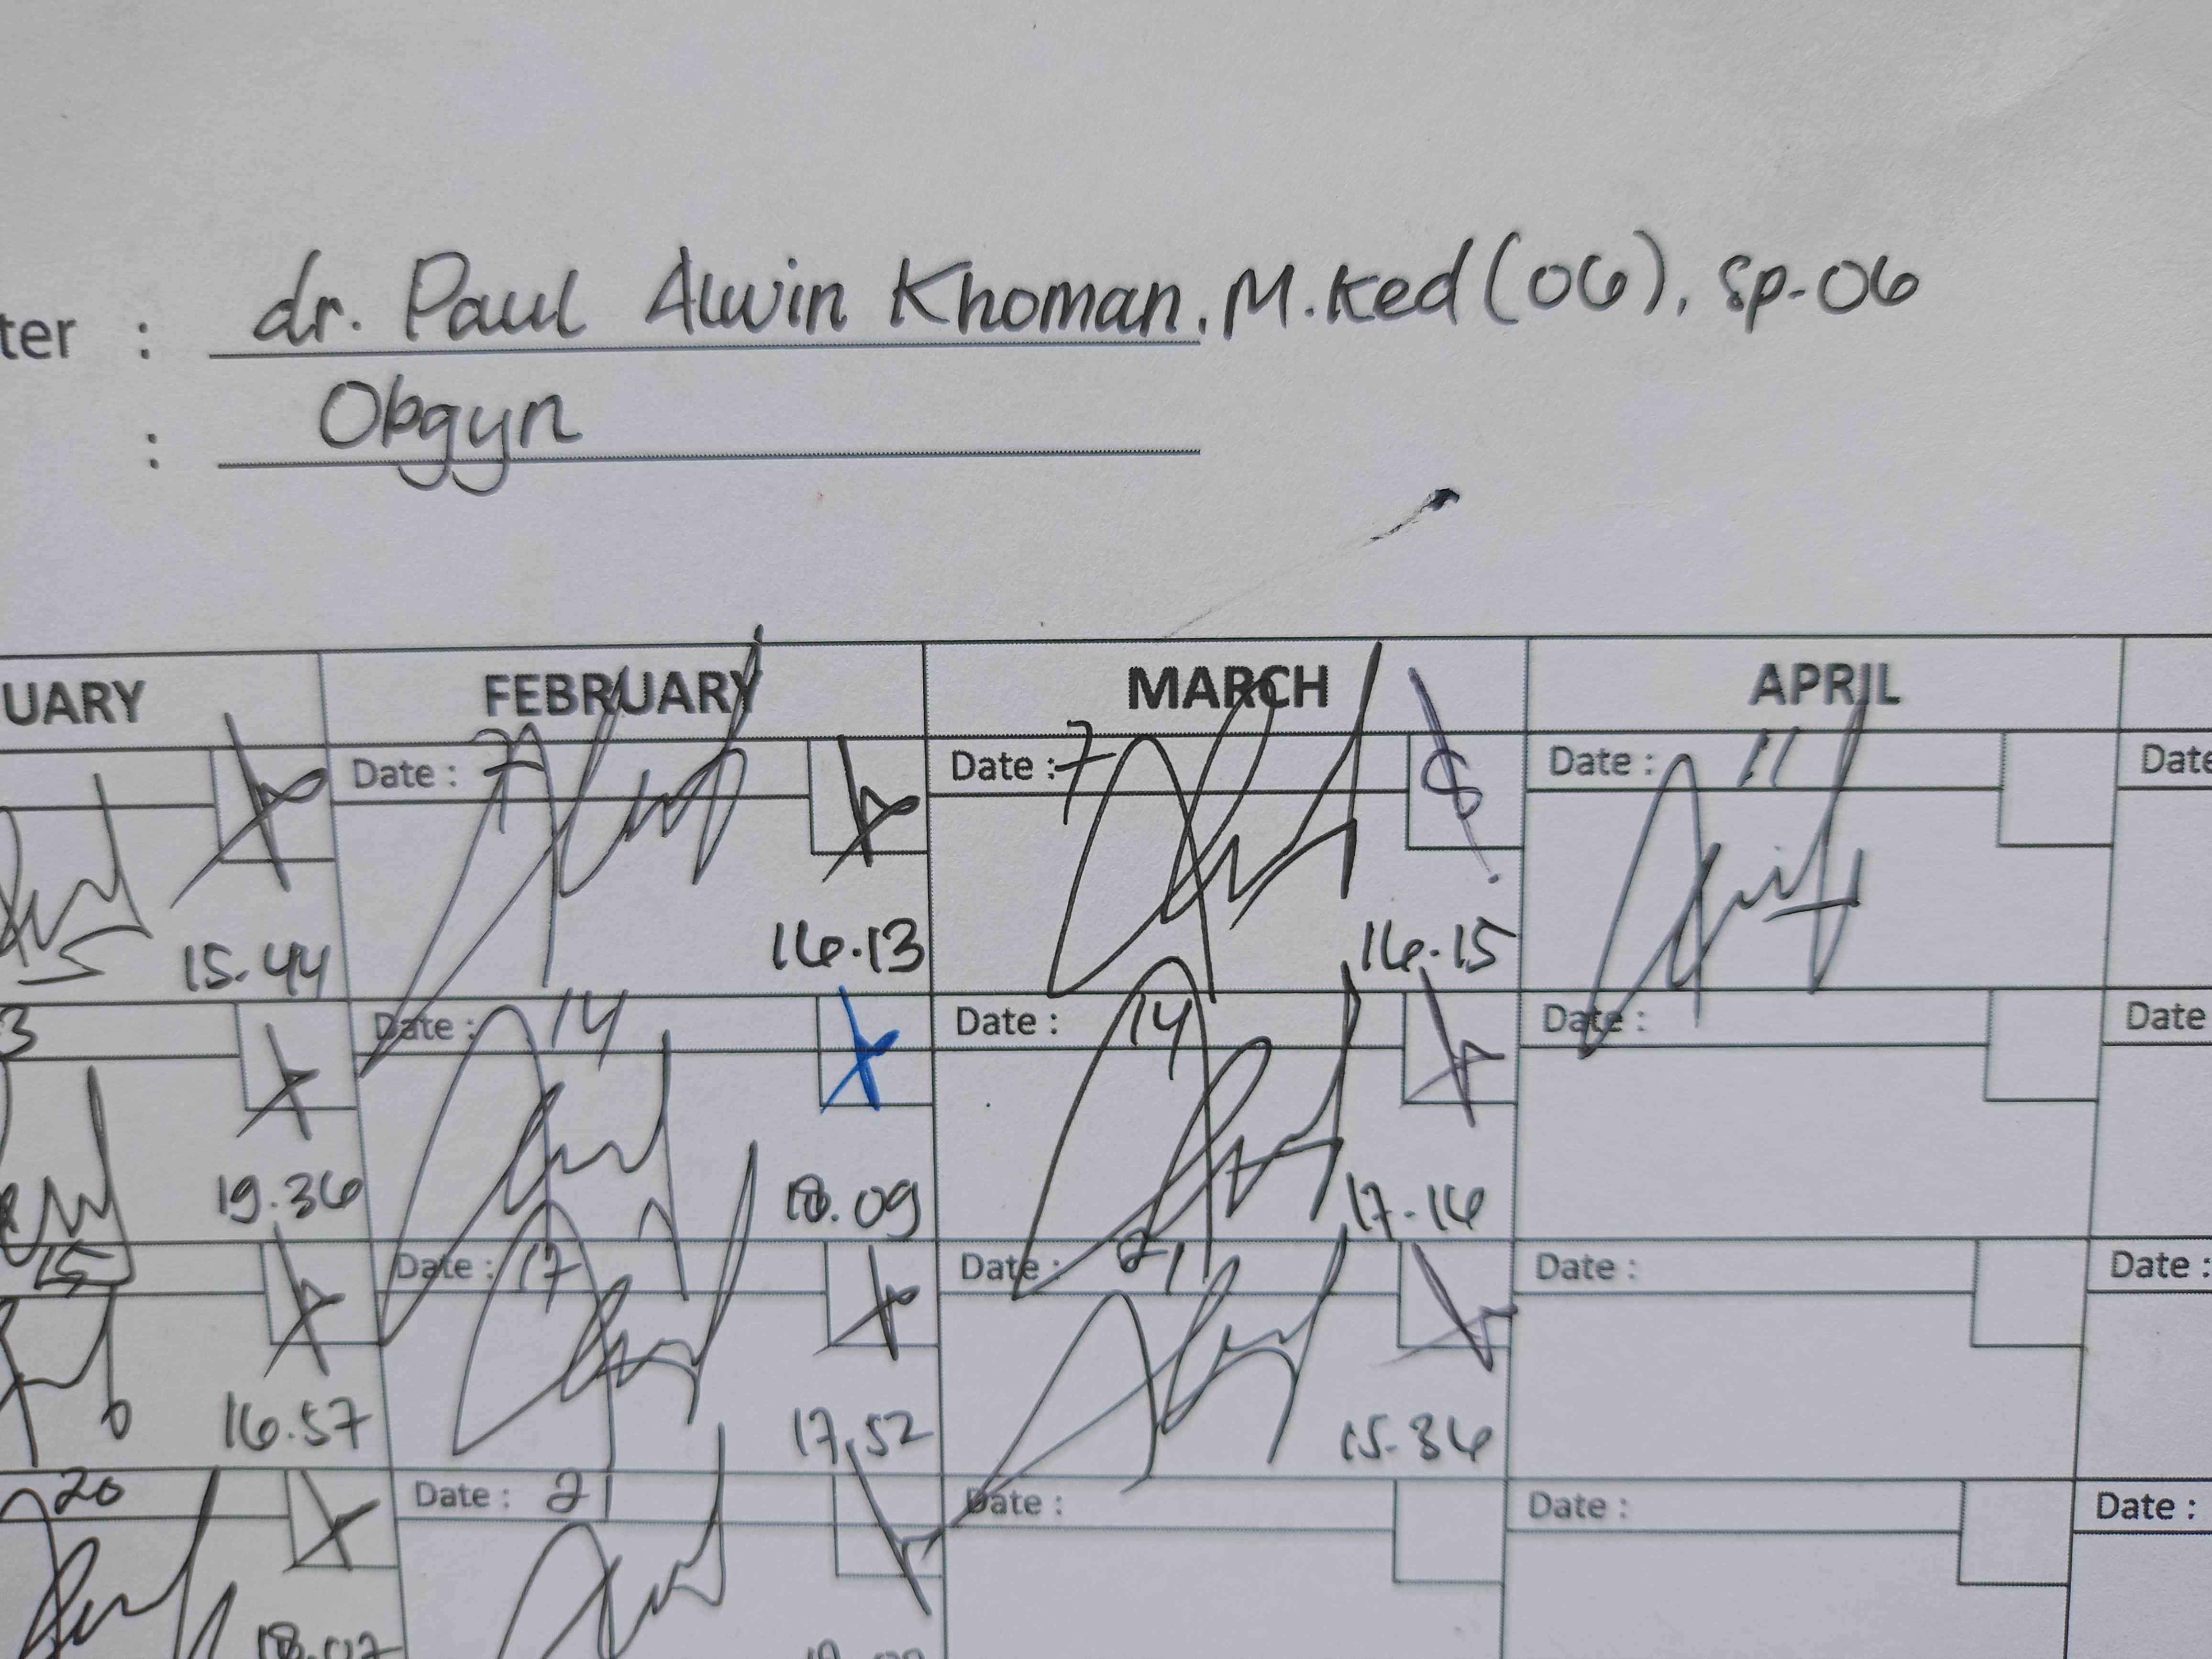 ter : dr. Paul Alwin Khoman, M.Ked (OG), Sp-OG
: Obgyn
UARY FEBRUARY MARCH APRIL
Date : 7 Date : 7 Date : 11 Date
15.44 16.13 16.15
3 Date : 14 Date : 14 Date : Date
19.36 18.09 17.16
15 Date : 17 Date : 21 Date : Date :
16.57 17.52 15.36
20 Date : 21 Date : Date : Date :
18.07